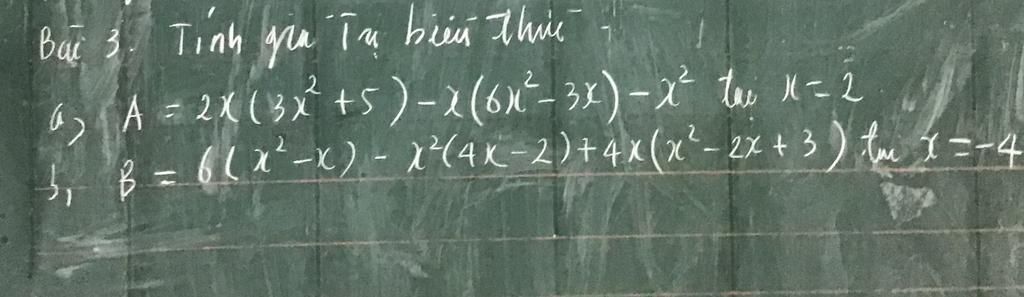 Bài 3. Tính giá Trị biểu thức
a, A = 2x(3x² + 5) - x(6x² - 3x) - x² tại x = 2
b, B = 6(x² - x) - x²(4x - 2) + 4x(x² - 2x + 3) tại x = -4